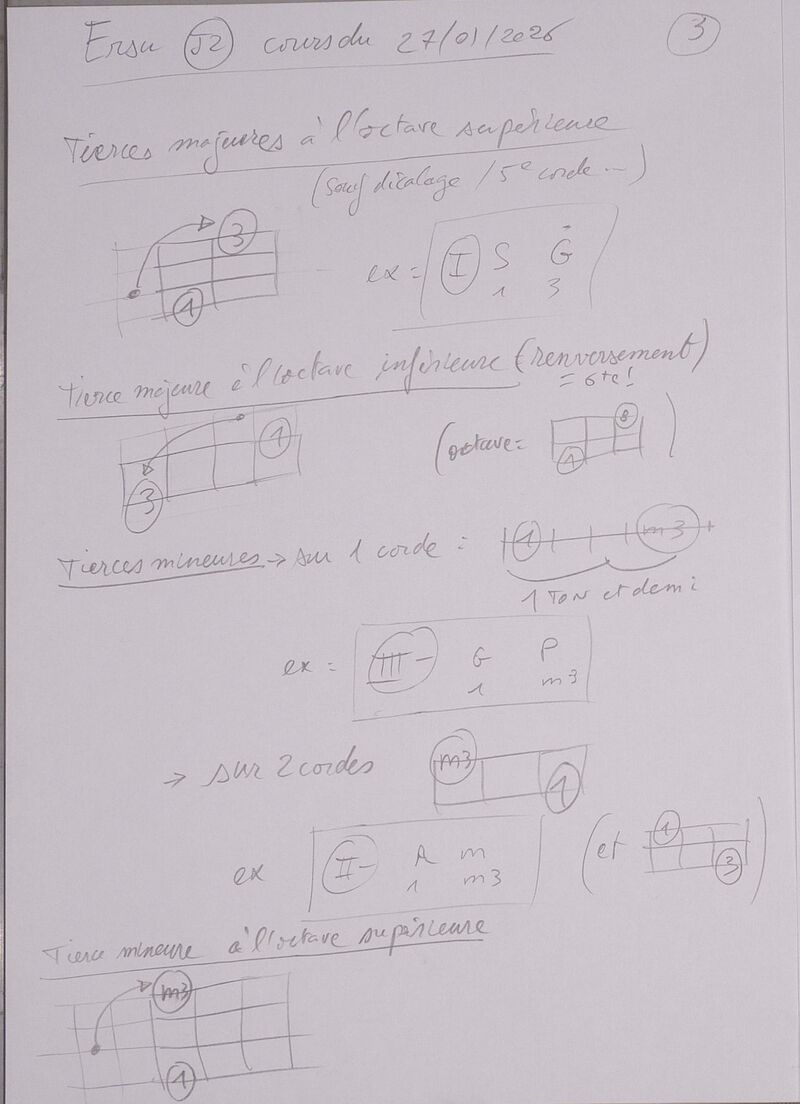 Ersu J2 cours du 27/01/2026 3
Tierces majeures à l'octave supérieure
(sauf décalage / 5e corde ...)
3
1
ex = I S G
1 3
Tierce majeure à l'octave inférieure (renversement)
= 6te !
1
3
(octave = 8
1 )
Tierces mineures → sur 1 corde : 1 m3
1 TON et demi
ex = III- G P
1 m3
→ sur 2 cordes m3
1
ex II- R m
1 m3
(et 1
3 )
Tierce mineure à l'octave supérieure
m3
1